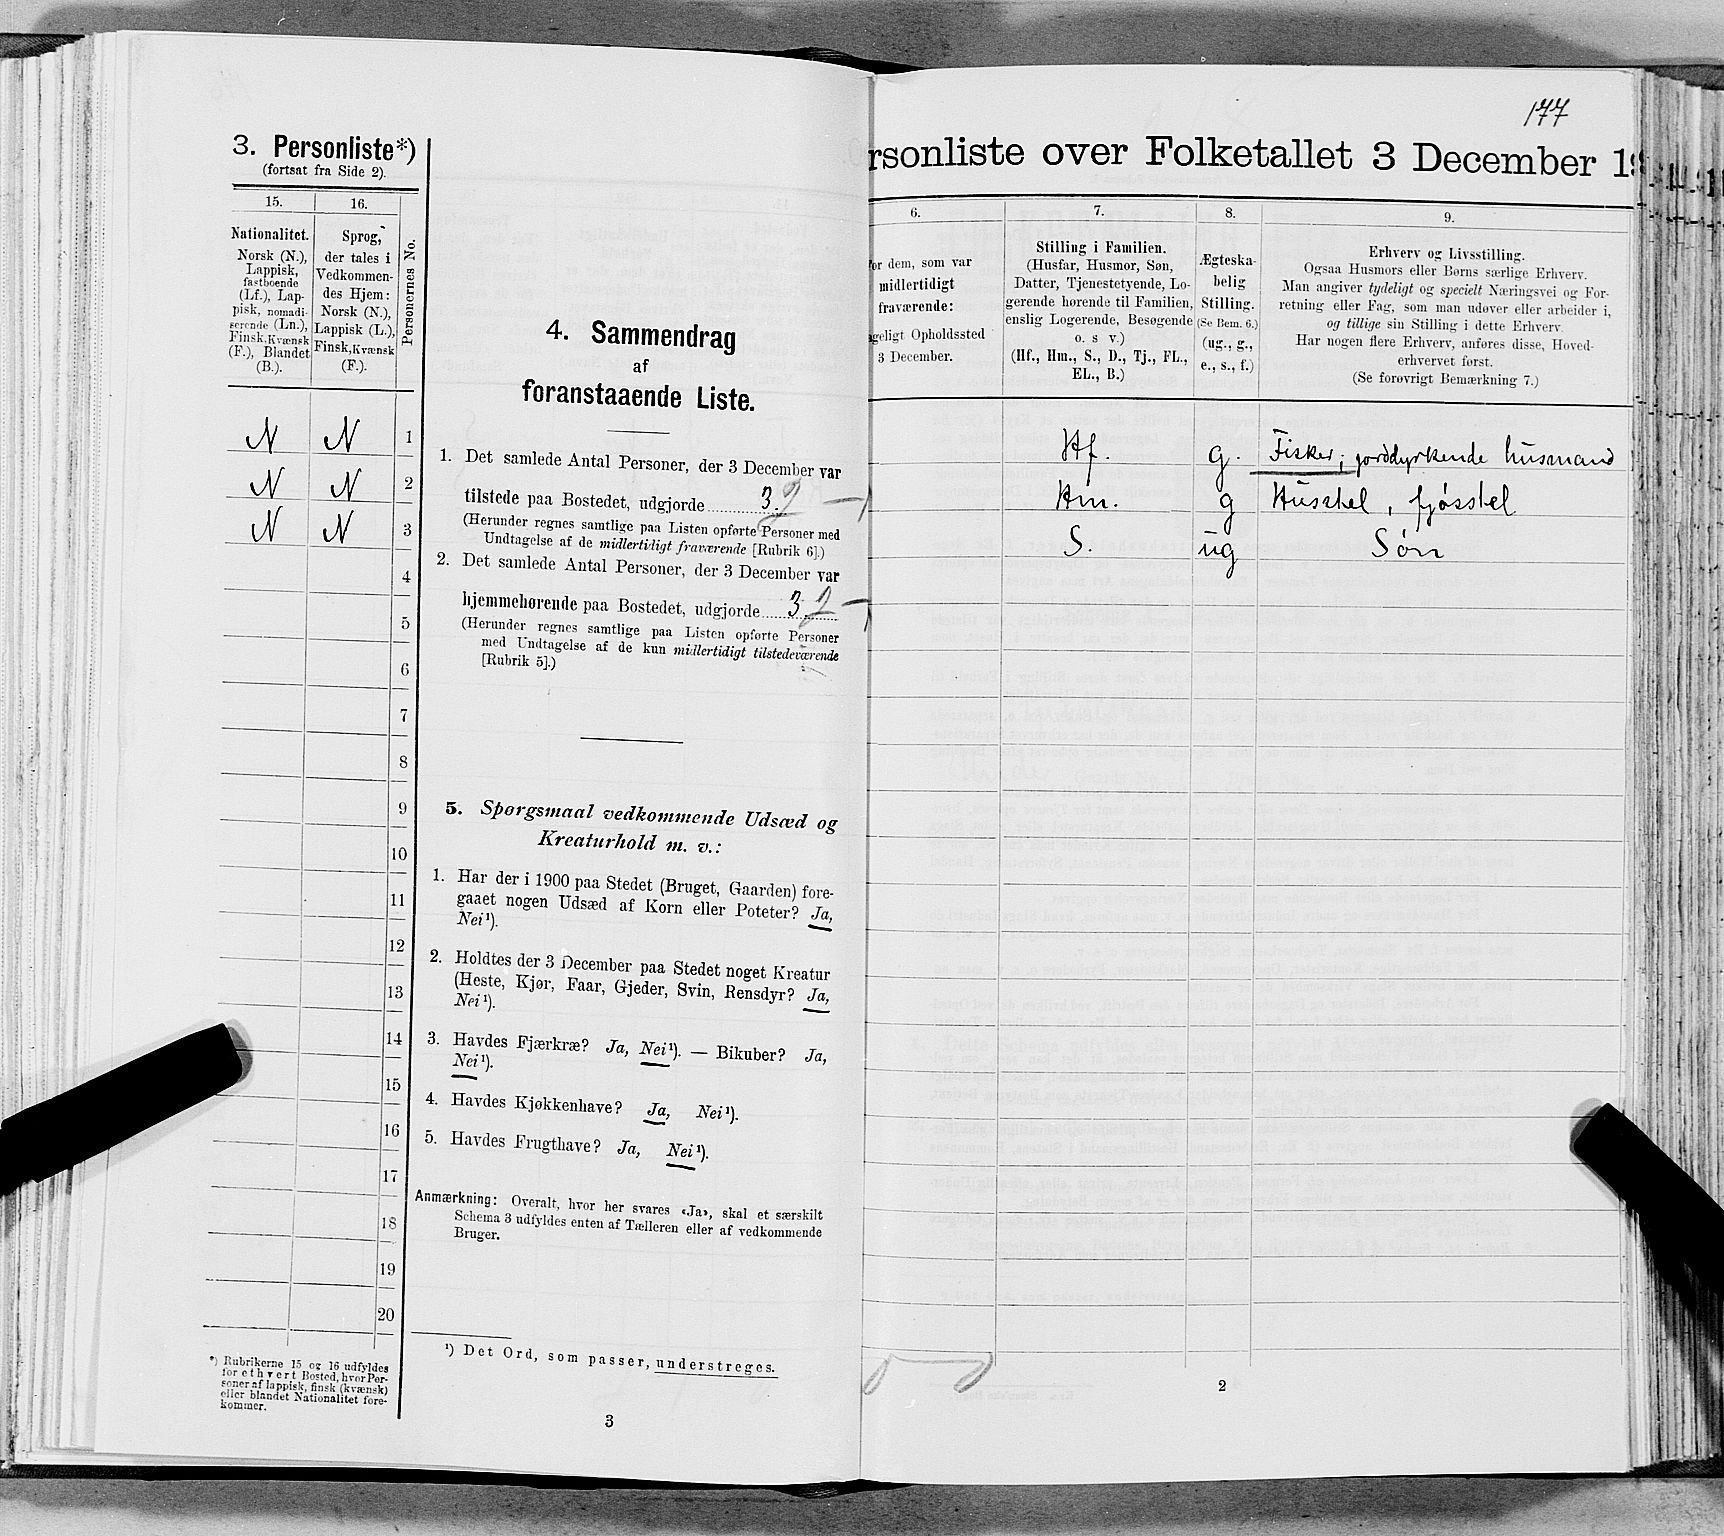 3. Personliste*)
(fortsat fra Side 2).
15.
16.
Personernes No.
Nationalitet.
Norsk (N.),
Lappisk,
fastboende
(Lf.), Lap-
pisk, nomadi-
serende (Ln.),
Finsk, Kvænsk
(F.), Blandet
(B.).
Sprog,
der tales i
Vedkommen-
des Hjem:
Norsk (N.),
Lappisk (L.),
Finsk, Kvænsk
(F.).
N N 1
N N 2
N N 3
4
5
6
7
8
9
10
11
12
13
14
15
16
17
18
19
20
*) Rubrikerne 15 og 16 udfyldes
for ethvert Bosted, hvor Per-
soner af lappisk, finsk (kvænsk)
eller blandet Nationalitet fore-
kommer.
4. Sammendrag
af
foranstaaende Liste.
1. Det samlede Antal Personer, der 3 December var
tilstede paa Bostedet, udgjorde 3.
(Herunder regnes samtlige paa Listen opførte Personer med
Undtagelse af de midlertidigt fraværende [Rubrik 6].)
2. Det samlede Antal Personer, der 3 December var
hjemmehørende paa Bostedet, udgjorde 3.
(Herunder regnes samtlige paa Listen opførte Personer
med Undtagelse af de kun midlertidigt tilstedeværende
[Rubrik 5].)
5. Spørgsmaal vedkommende Udsæd og
Kreaturhold m. v.:
1. Har der i 1900 paa Stedet (Bruget, Gaarden) fore-
gaaet nogen Udsæd af Korn eller Poteter? Ja,
Nei¹).
2. Holdtes der 3 December paa Stedet noget Kreatur
(Heste, Kjør, Faar, Gjeder, Svin, Rensdyr? Ja,
Nei¹).
3. Havdes Fjærkræ? Ja, Nei¹). — Bikuber? Ja,
Nei¹).
4. Havdes Kjøkkenhave? Ja, Nei¹).
5. Havdes Frugthave? Ja, Nei¹).
Anmærkning: Overalt, hvor her svares «Ja», skal et særskilt
Schema 3 udfyldes enten af Tælleren eller af vedkommende
Bruger.
¹) Det Ord, som passer, understreges.
3
177
rsonliste over Folketallet 3 December 19
6.
7.
8.
9.
for dem, som var
midlertidigt
fraværende:
geligt Opholdssted
3 December.
Stilling i Familien.
(Husfar, Husmor, Søn,
Datter, Tjenestetyende, Lo-
gerende hørende til Familien,
enslig Logerende, Besøgende
o. s v.)
(Hf., Hm., S., D., Tj., FL.,
EL., B.)
Ægteska-
belig
Stilling.
(Se Bem. 6.)
(ug., g.,
e., s., f.)
Erhverv og Livsstilling.
Ogsaa Husmors eller Børns særlige Erhverv.
Man angiver tydeligt og specielt Næringsvei og For-
retning eller Fag, som man udøver eller arbeider i,
og tillige sin Stilling i dette Erhverv.
Har nogen flere Erhverv, anføres disse, Hoved-
erhvervet først.
(Se forøvrigt Bemærkning 7.)
Hf. g. Fisker; jorddyrkende husmand
Hm. g Husstel, fjøsstel
S. ug Søn
2